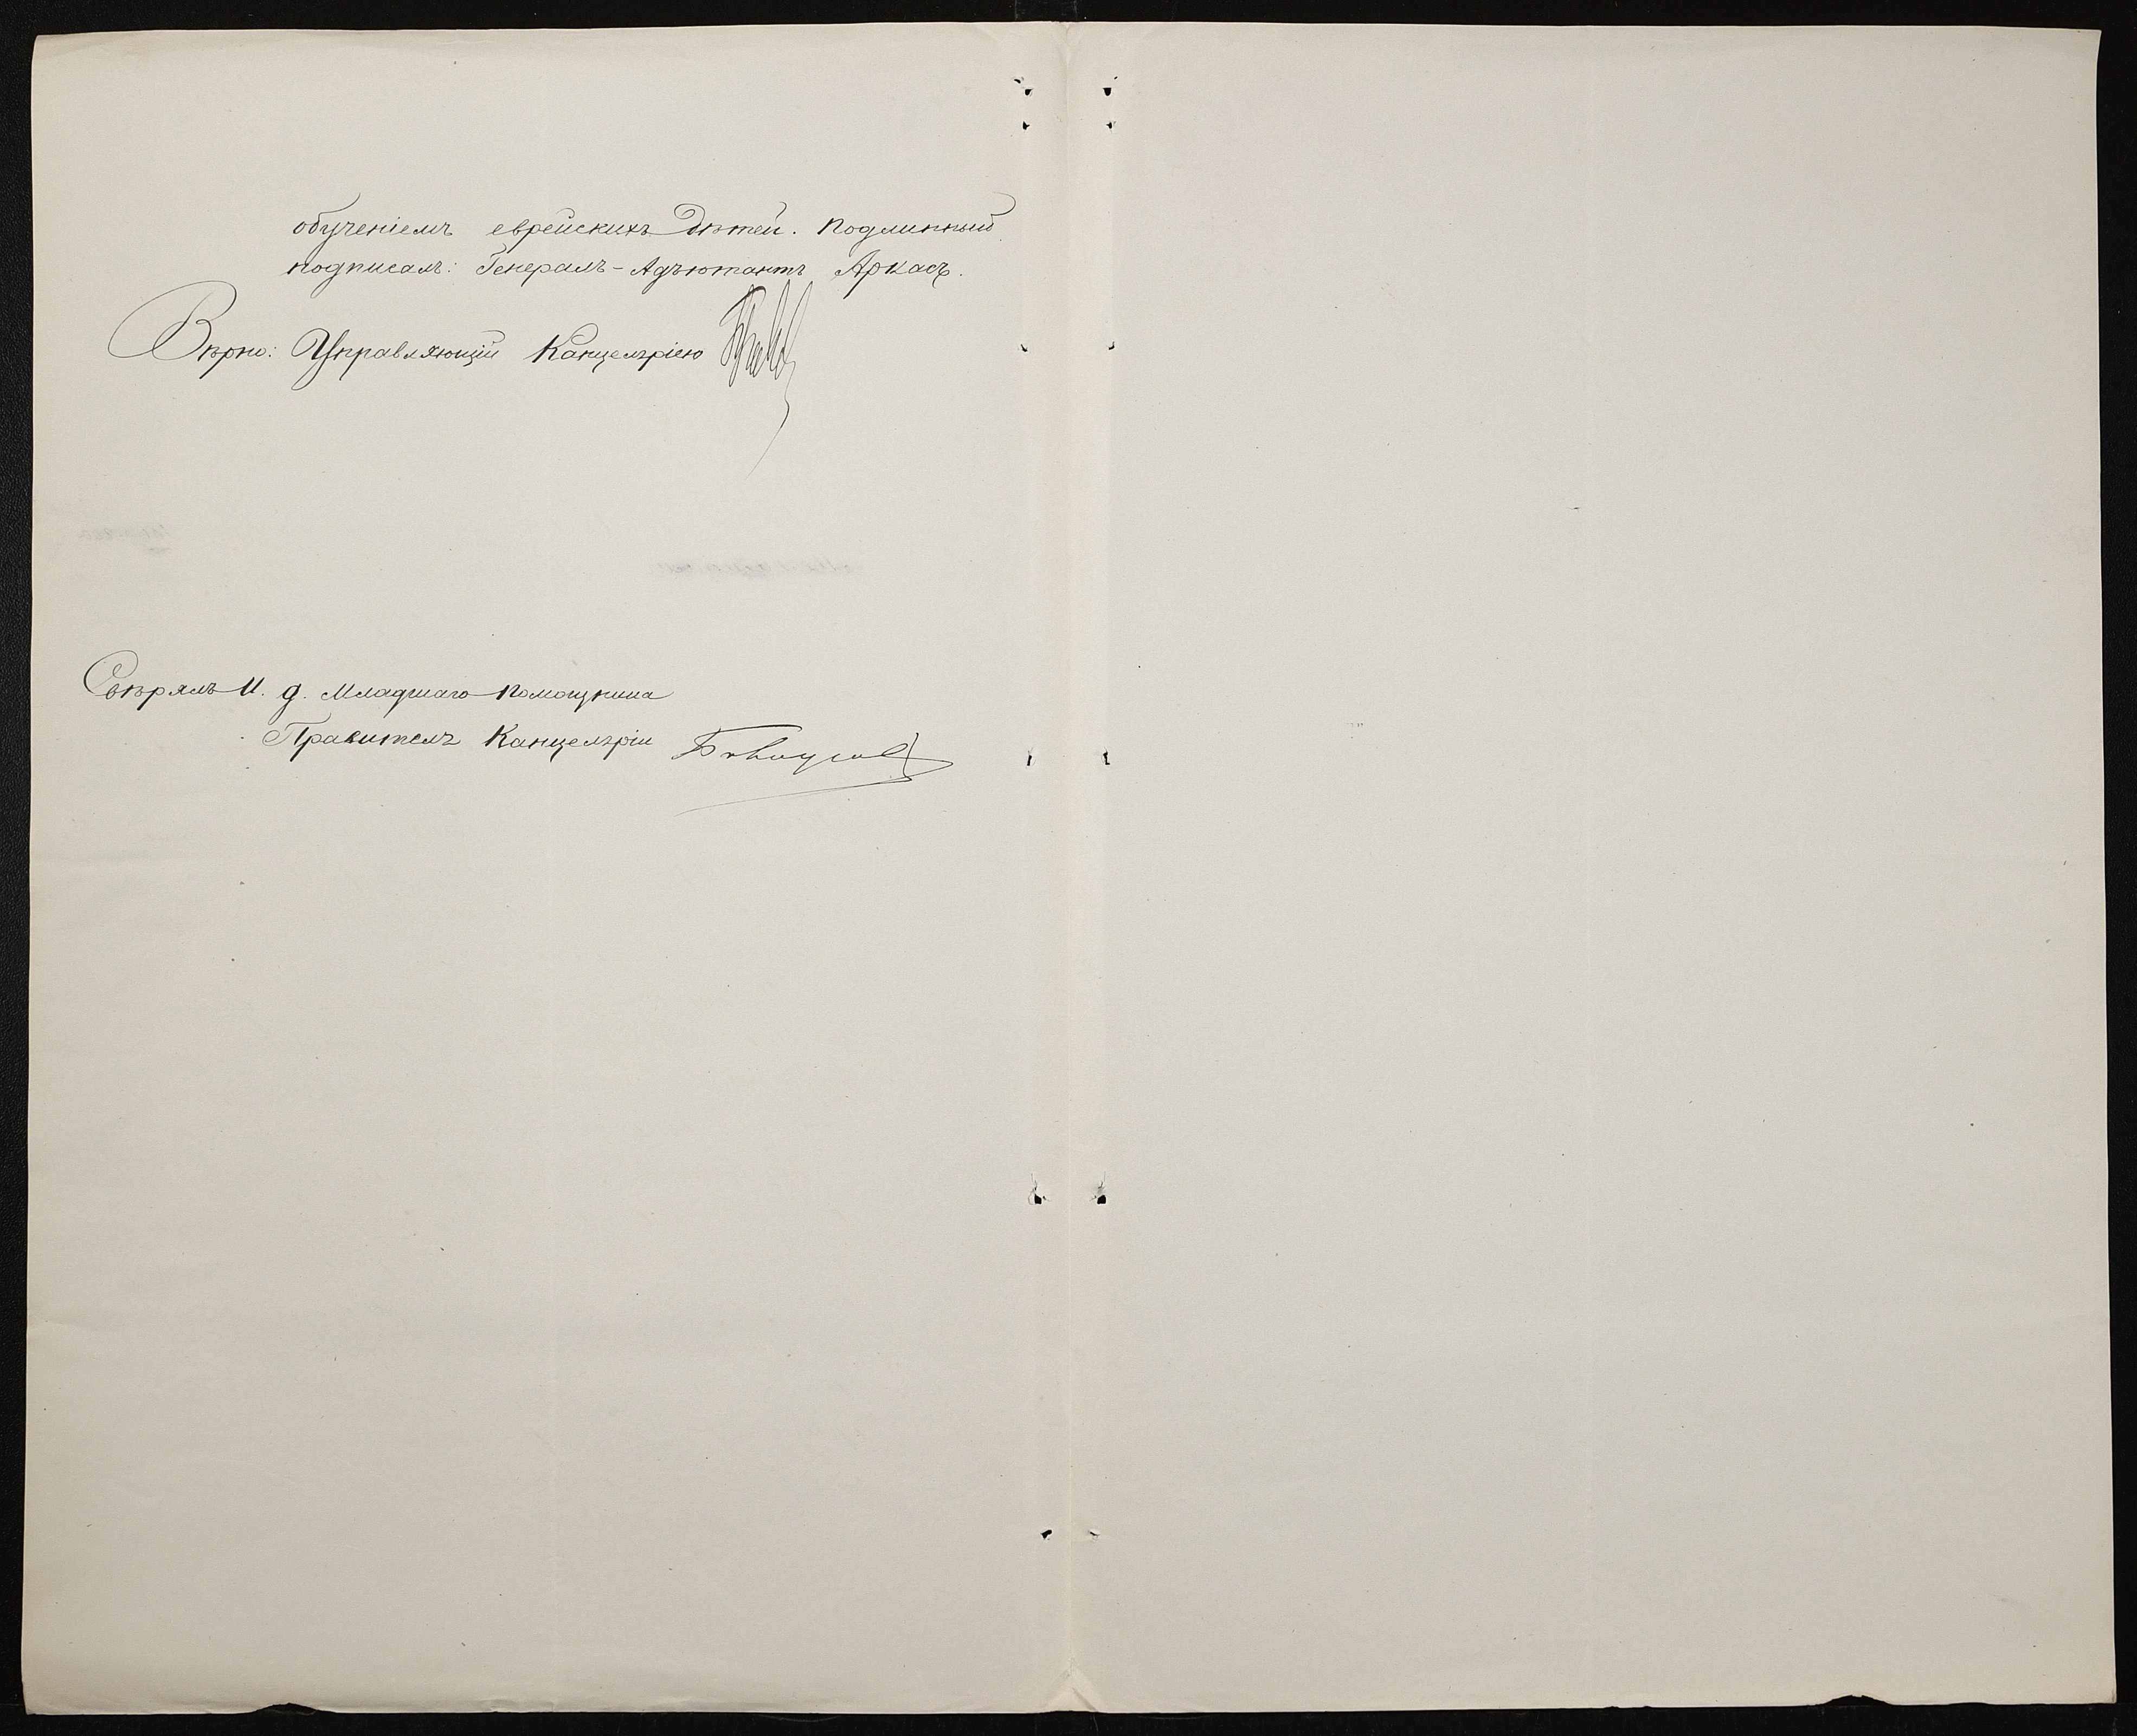 обученіемъ еврейскихъ дѣтей. Подлинный
подписалъ: Генералъ-Адъютантъ Аркасъ.
Вѣрно: Управляющій Канцелярією
Свѣрялъ И. д. Младшаго Помощника
Правителя Канцеляріи